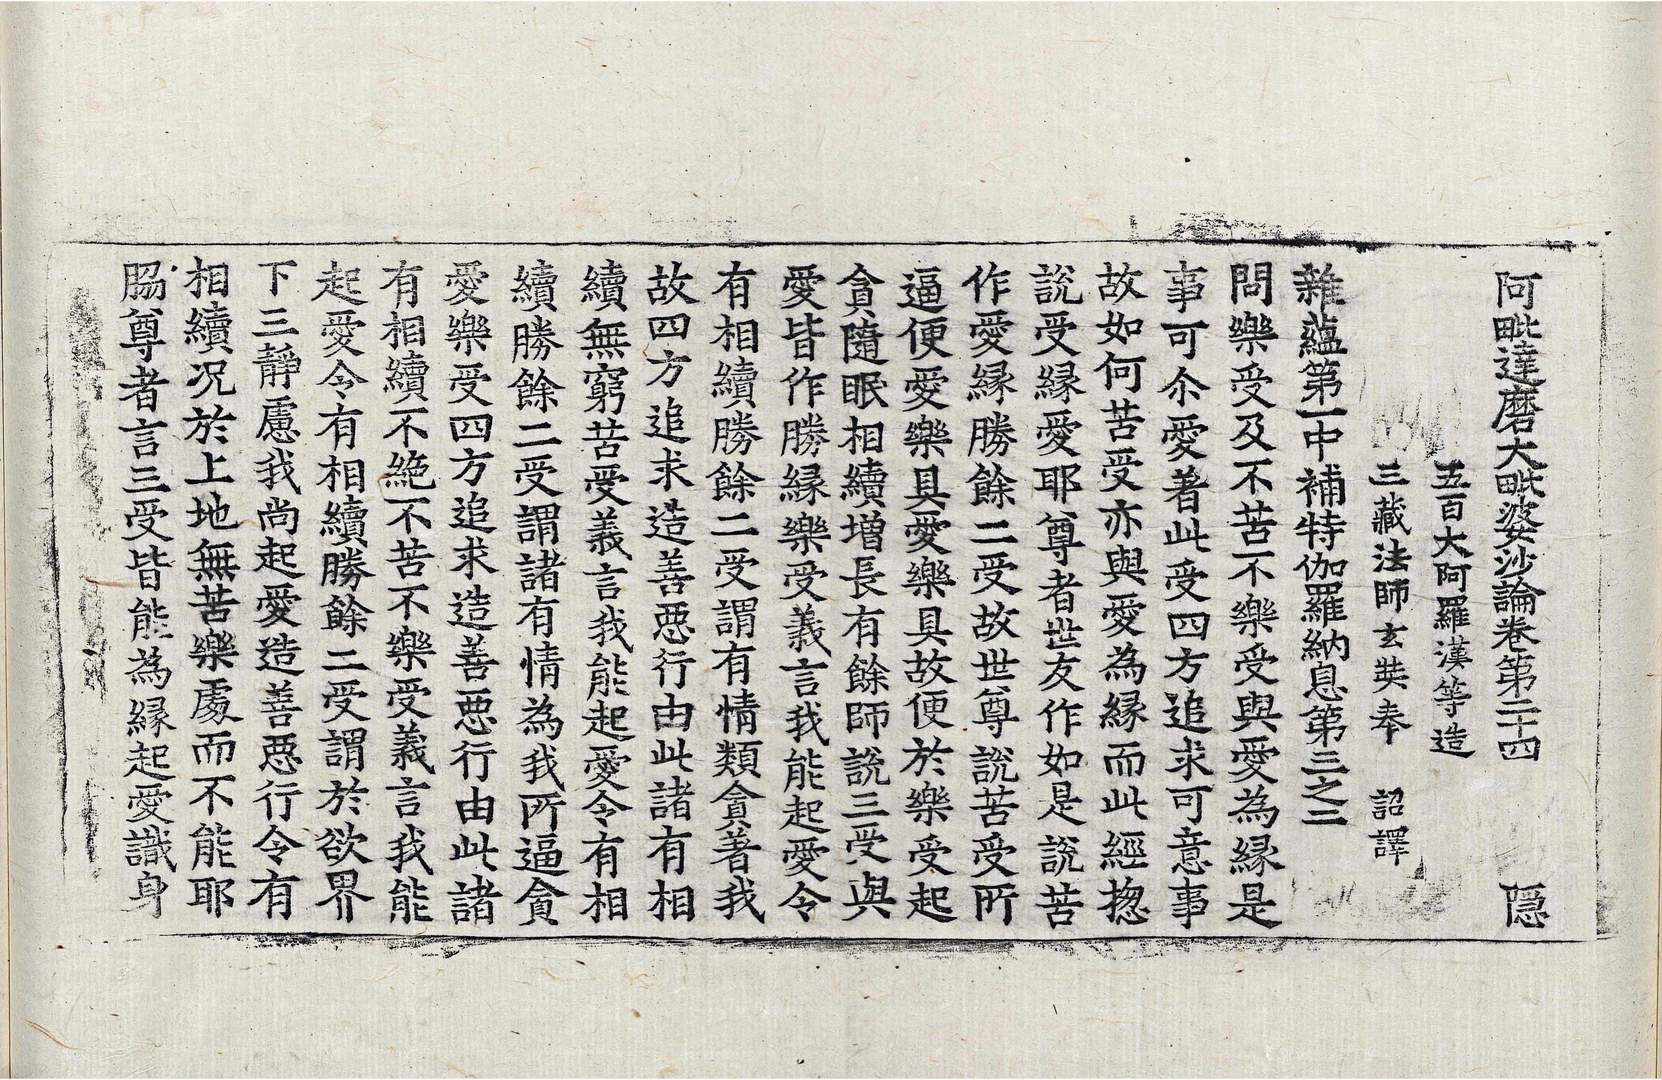 阿毗達磨大毗婆沙論卷第二十四 隱
五百大阿羅漢等造
三藏法師玄奘奉 詔譯
雜蘊第一中補特伽羅納息第三之二
問樂受及不苦不樂受與愛為縁是
事可尒愛著此受四方追求可意事
故如何苦受亦與愛為縁而此經揔
說受縁愛耶尊者世友作如是說苦
作愛縁勝餘二受故世尊說苦受所
逼便愛樂具愛樂具故便於樂受起
貪隨眠相續增長有餘師說三受與
愛皆作勝縁樂受義言我能起愛令
有相續勝餘二受謂有情類貪著我
故四方追求造善惡行由此諸有相
續無窮苦受義言我能起愛令有相
續勝餘二受謂諸有情為我所逼貪
愛樂受四方追求造善惡行由此諸
有相續不絶不苦不樂受義言我能
起愛令有相續勝餘二受謂於欲界
下三靜慮我尚起愛造善惡行令有
相續况於上地無苦樂處而不能耶
脇尊者言三受皆能為縁起愛識身